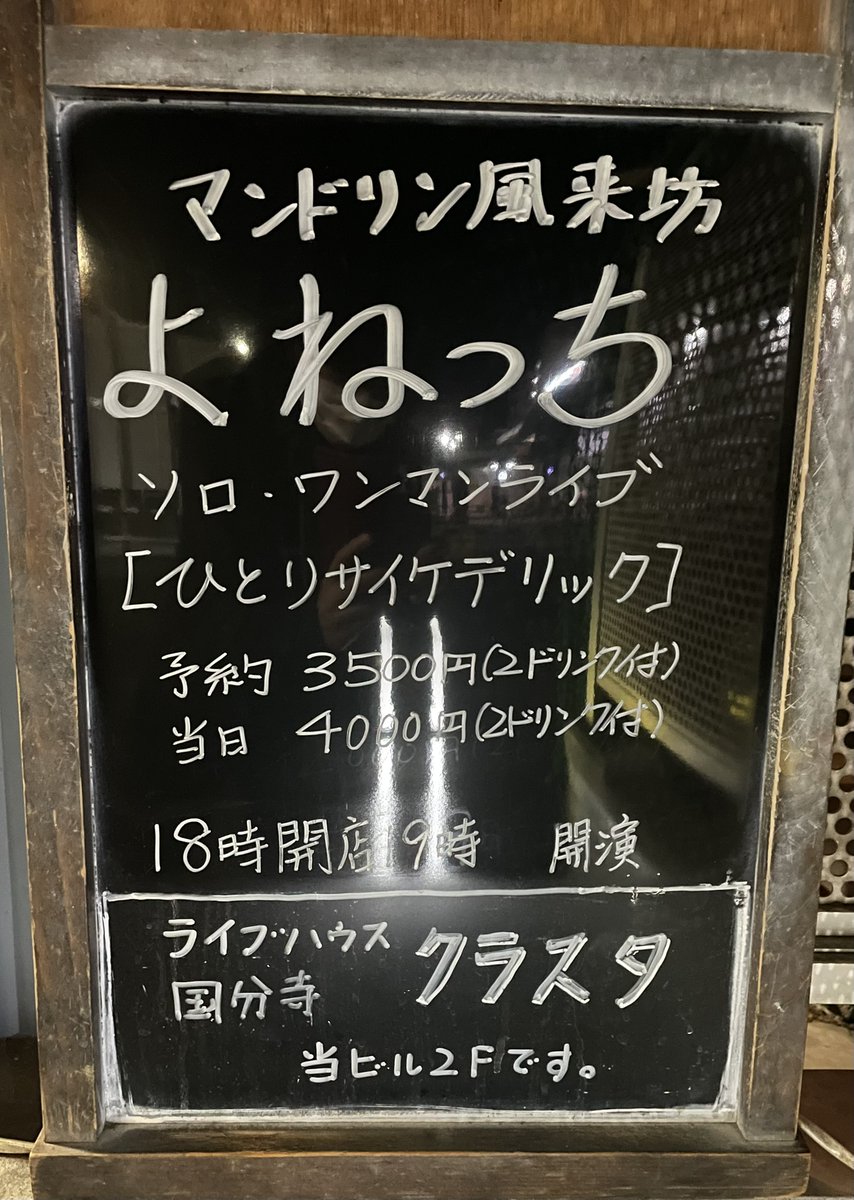 マンドリン風来坊
よねっち
ソロ・ワンマンライブ
[ひとりサイケデリック]
予約 3500円(2ドリンク付)
当日 4000円(2ドリンク付)
18時開店19時 開演
ライブハウス
国分寺 クラスタ
当ビル2Fです。